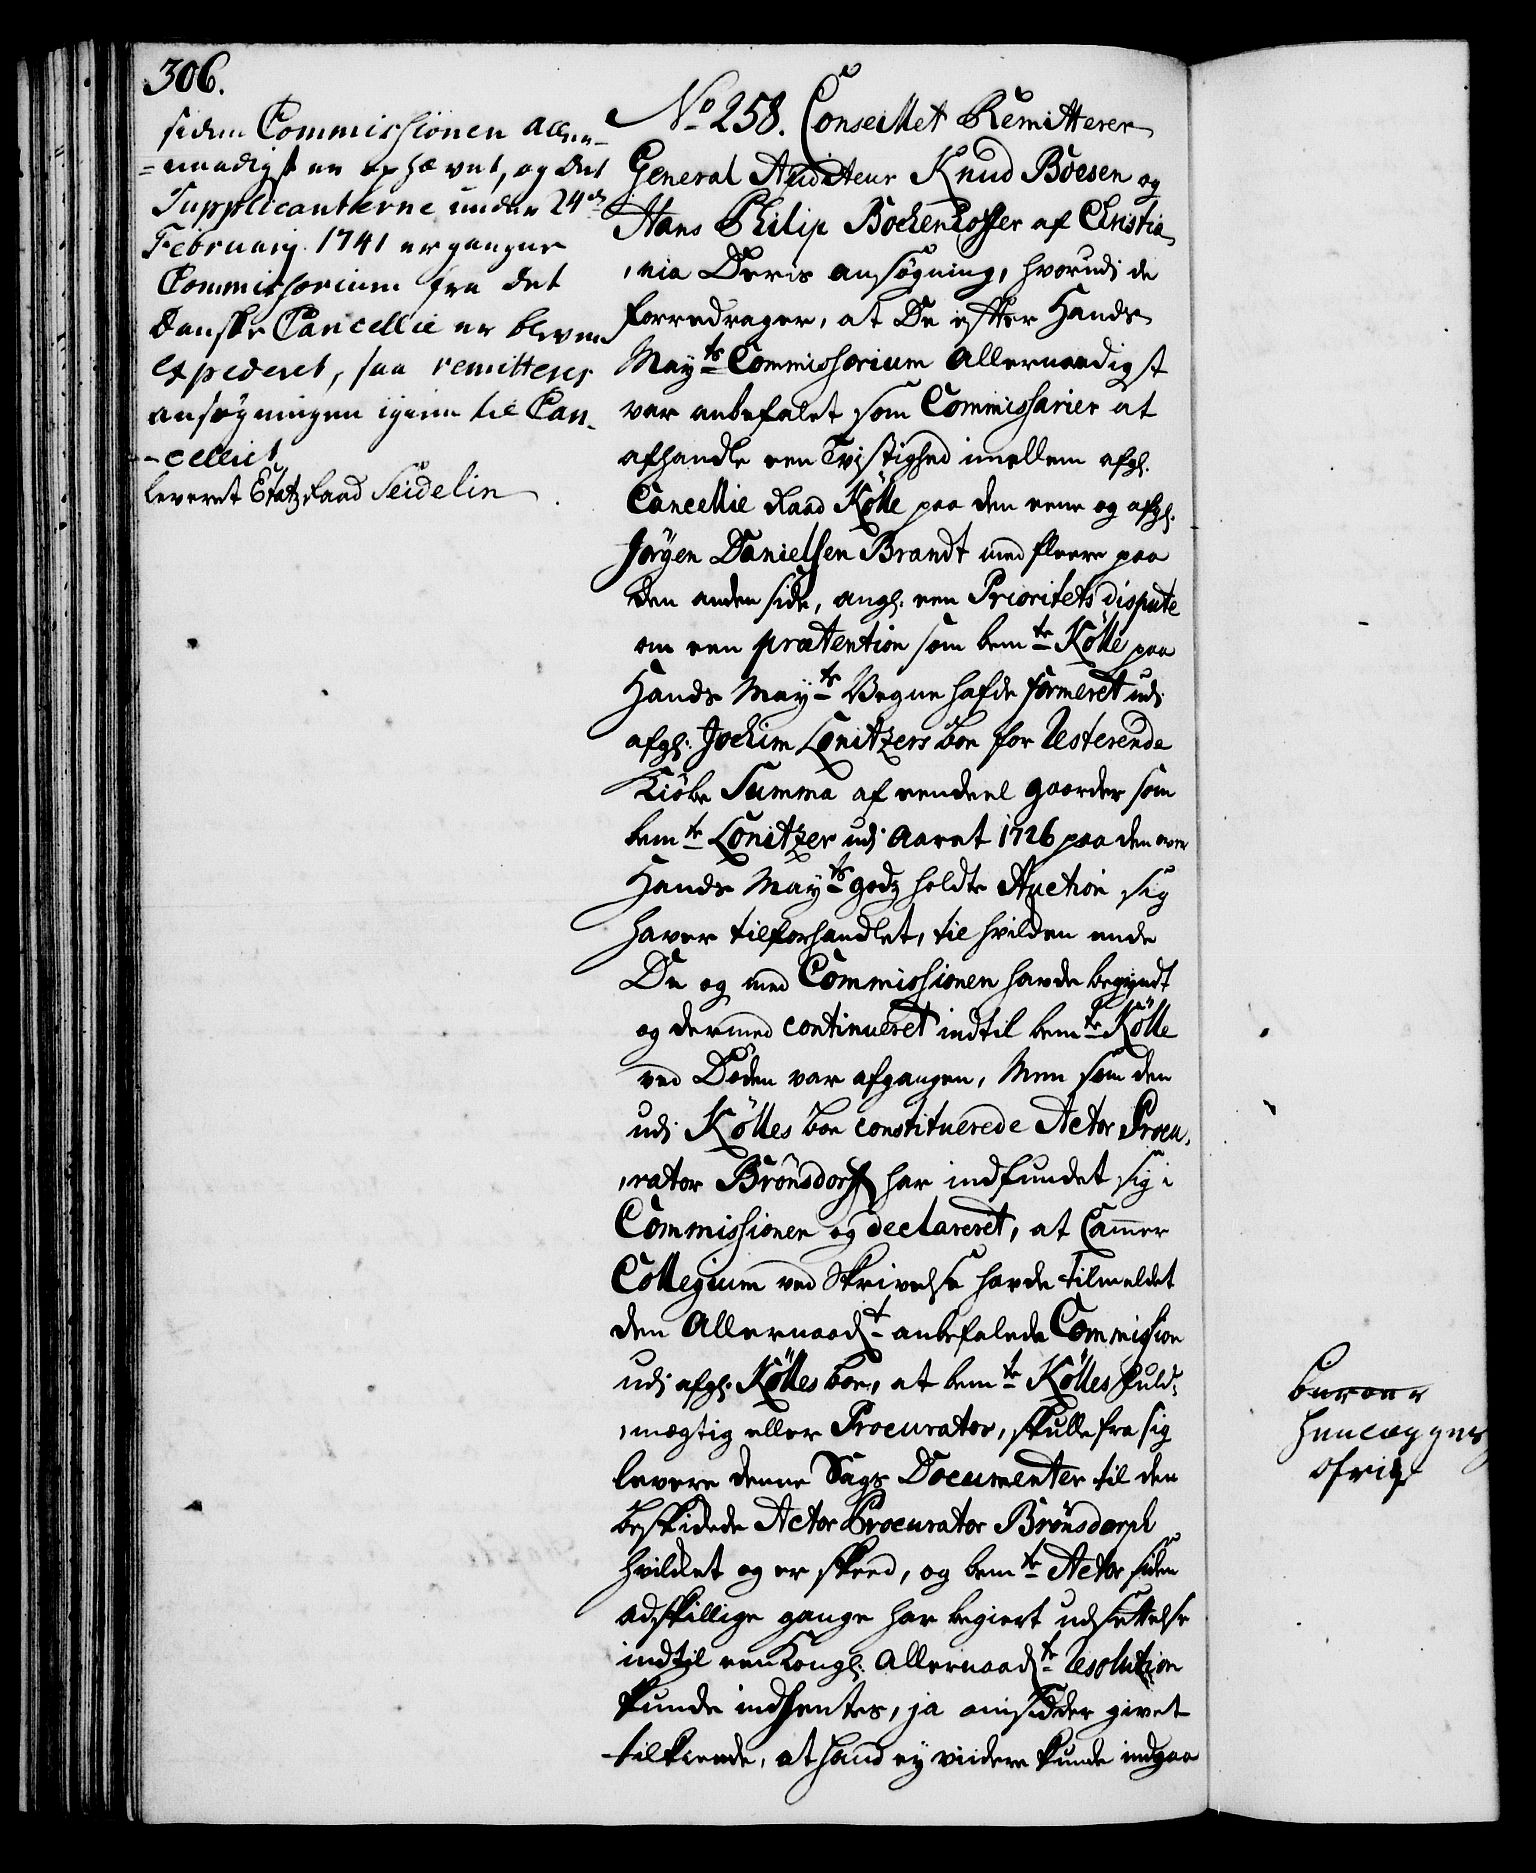 306.
siden Commissionen Aller-
=naadigst er ophævet, og det
Supplicanterne under 24de
Februarij 1741 ergangne
Commissorium fra det
danske Cancellie er bleven
expederet, saa remitteres
ansøgningen igien til Can-
-celliet
leveret Etatz Raad Seidelin
No 258. Conseillet Remitterer
General Auditeur Knud Boesen og
Hans Philip Bockenhoffer af Christia,
,nia Deris ansøgning, hvorudi de
forredrager, at De efter Hands
Mayts Commissorium Allernaadigst
var anbefalet som Commissarier at
afhandle een Tvistighed imellem afg.
Cancellie Raad Kölle paa den eene og afg.
Jørgen Danielsen Brandt med fleere paa
den anden side, ang. een Prioritets dispute
om een prætention som bemte Kölle paa
Hands Mayts Vegne hafde formeret udi
afg. Jochim Lonitzers boe for Resterende
Kiöbe Summa af eendeel gaarder som
bemte Lonitzer udi Aaret 1726 paa den over
Hands Mayts godz holdte Auction sig
haver tilforhandlet, til hvilken ende
De og med Commissionen havde begyndt
og dermed continueret indtil bemte Kölle
ved Døden var afgangen, Men som den
udi Kölles boe constituerede Actor Procu,
,rator Brönsdorph har indfundet sig i
Commissionen og declareret, at Cammer
Collegium ved Skrivelse havde tilmeldet
den Allernaadt anbefalede Commission
udi afg. Kölles boe, at bemte Kölles fuld,
,mægtig eller Procurator, skulle fra sig
levere denne Sags Documenter til den
beskikede Actor Procurator Brönsdorph
hvilket og er skeed, og bemte Actor siden
adskillige gange har begiert udsettelse
indtil een Kongl. Allernaadte Resolution
kunde indhentes, ja omsider givet
tilkiende, at hand ey viidere kunde indgaa
henlægges